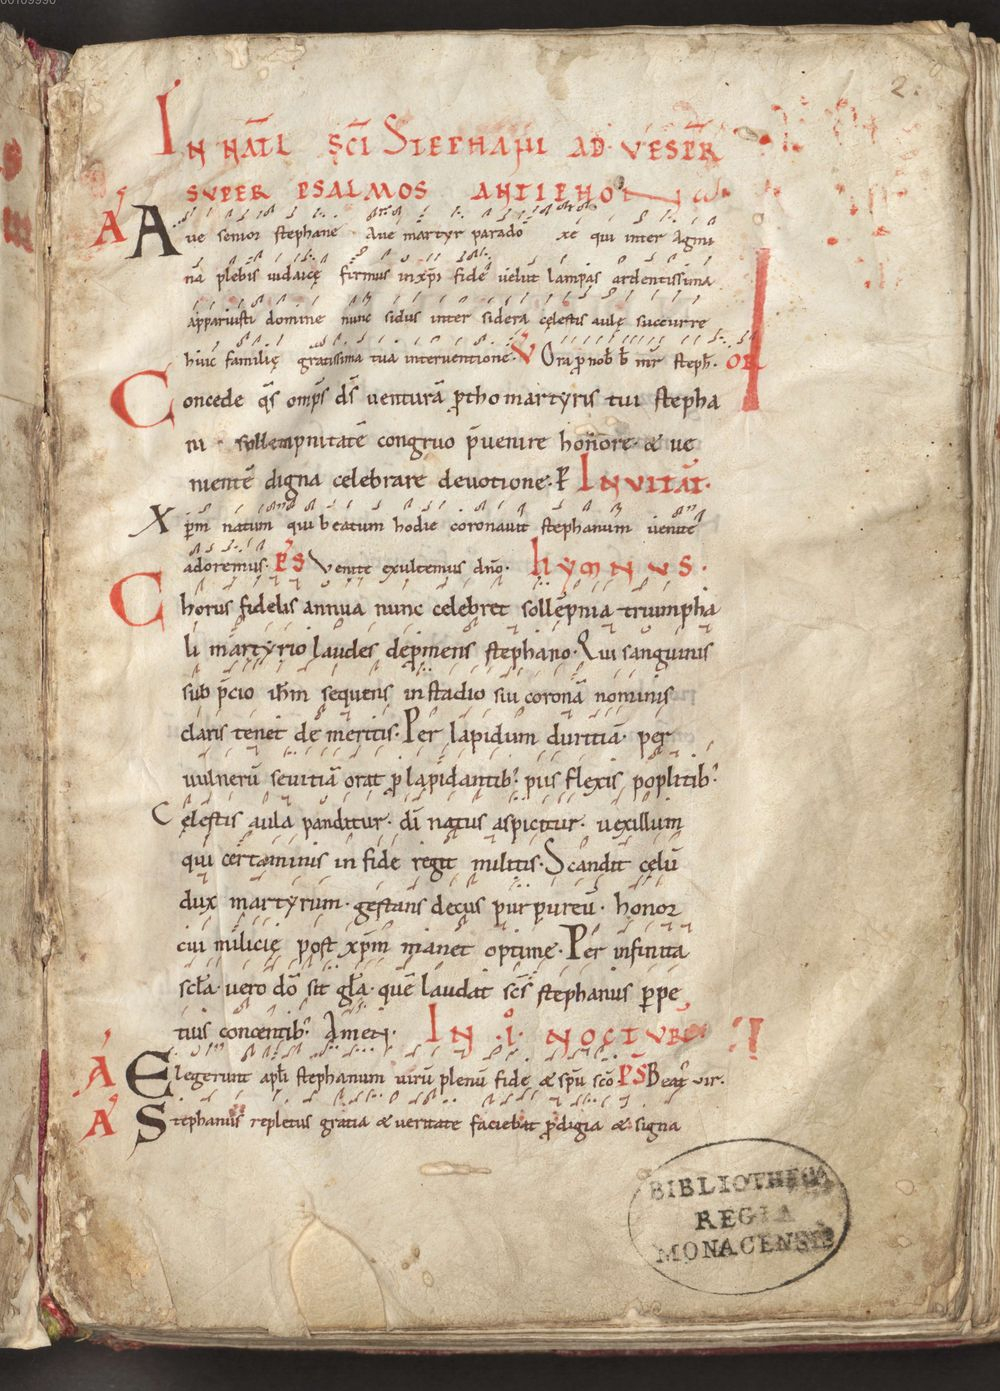 2.
IN NAT̄L SC̄I STEPHANI AD VESPR̄
SVPER PSALMOS ANTIPHONA
A Aue senior stephane Aue martyr parado xe qui inter agmi
na plebis iudaicę firmus in xp̄i fide uelut lampas ardentissima
apparuisti domine nunc sidus inter sidera cęlestis aulę succurre
huic familię gratissima tua interuentione. V Ora p nob b mr̄ steph. OR
Concede qs̄ omps̄ ds̄ uenturā pthomartyris tui stepha
ni sollempnitatē congruo p̄uenire honore. & ue
nientē digna celebrare deuotione. P INVITAT̄.
Xp̄m natum qui beatum hodie coronauit stephanum uenite
adoremus. PS Venite exultemus dn̄o. hYMNVS.
Chorus fidelis annua nunc celebret sollēpnia triumpha
li martyrio laudes depmens stephano. Qui sanguinis
sub p̄cio ihm̄ sequens in stadio sui coronā nominis
claris tenet de meritis. Per lapidum duritiā. per
uulnerū seuitiā orat p lapidantib; pius flexis poplitib;
Cęlestis aula panditur. dī natus aspicitur. uexillum
qui certaminis in fide regit militis. Scandit celū
dux martyrum. gestans decus purpureū. honor
cui milicię post xp̄m manet optime. Per infinita
scła. uero dō sit gła. quē laudat scs̄ stephanus perpe
tuis concentib; Amen. IN .I. NOCTVRN.
A Elegerunt apłi stephanum uirū plenū fide & spū scō PS Beat; uir.
A Stephanus repletus gratia & ueritate faciebat pdigia & signa
BIBLIOTHECA
REGIA
MONACENSIS